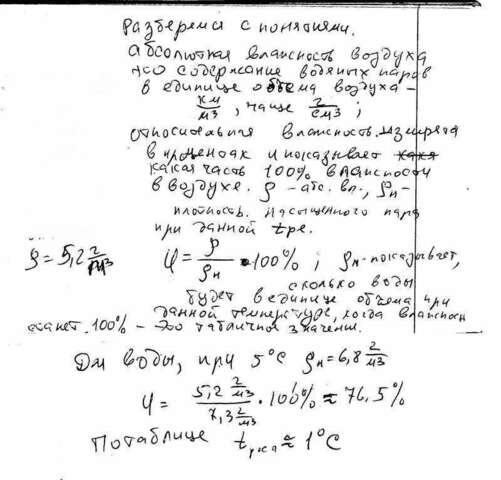 Разберемся с понятиями.
абсолютная влажность воздуха
это содержание водяных паров
в единице объема воздуха –
кг/м3, чаще г/см3;
относительная влажность измеряется
в процентах и показывает
какая часть 100% влажности
в воздухе. ρ – абс. вл., ρн –
плотность насыщенного пара
при данной t-ре.
ρ = 5,2 г/м3   φ = ρ/ρн · 100% ; ρн – показывает,
сколько воды
будет в единице объема при
данной температуре, когда влажность
станет 100% – это табличное значение.
Для воды, при 5°C ρн = 6,8 г/м3
φ = 5,2 г/м3 / 7,3 г/м3 · 100% ≈ 76,5%
По таблице t росы ≈ 1°C